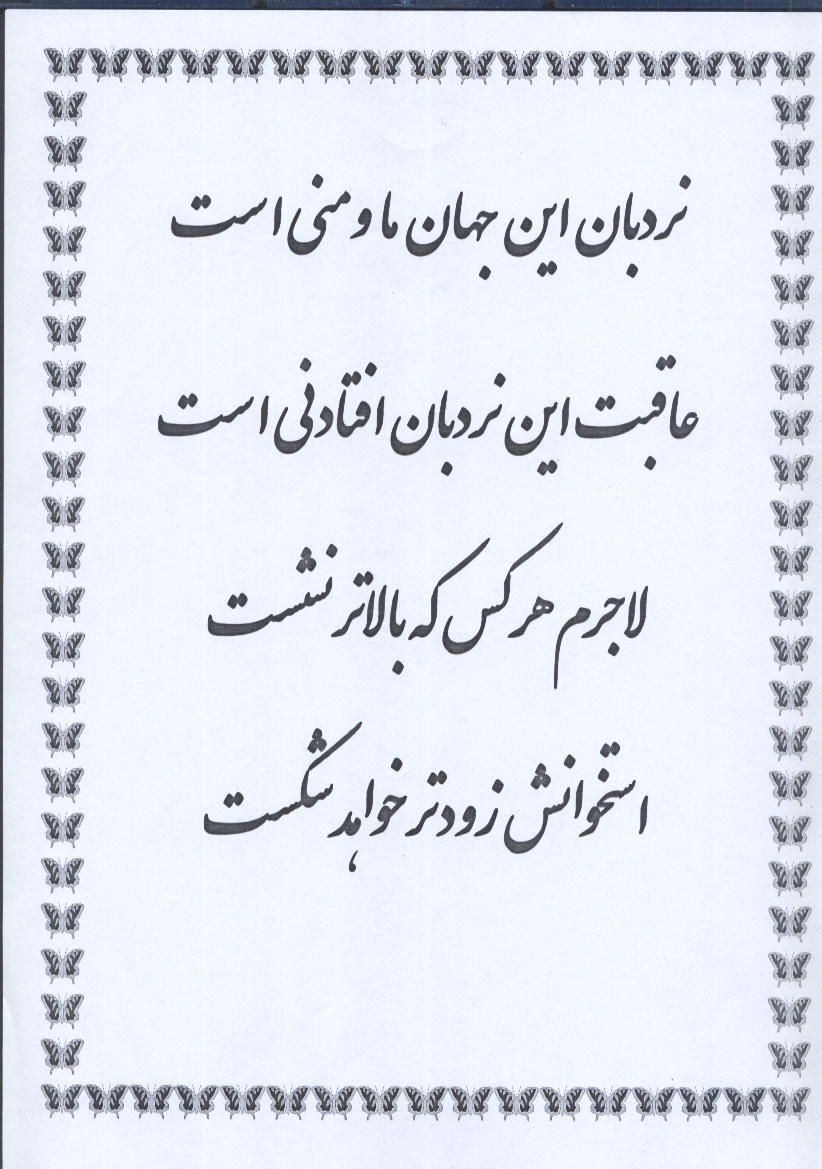 نردبان این جهان ما و منی است
عاقبت این نردبان افتادنی است
لاجرم هر کس که بالاتر نشست
استخوانش زودتر خواهد شکست